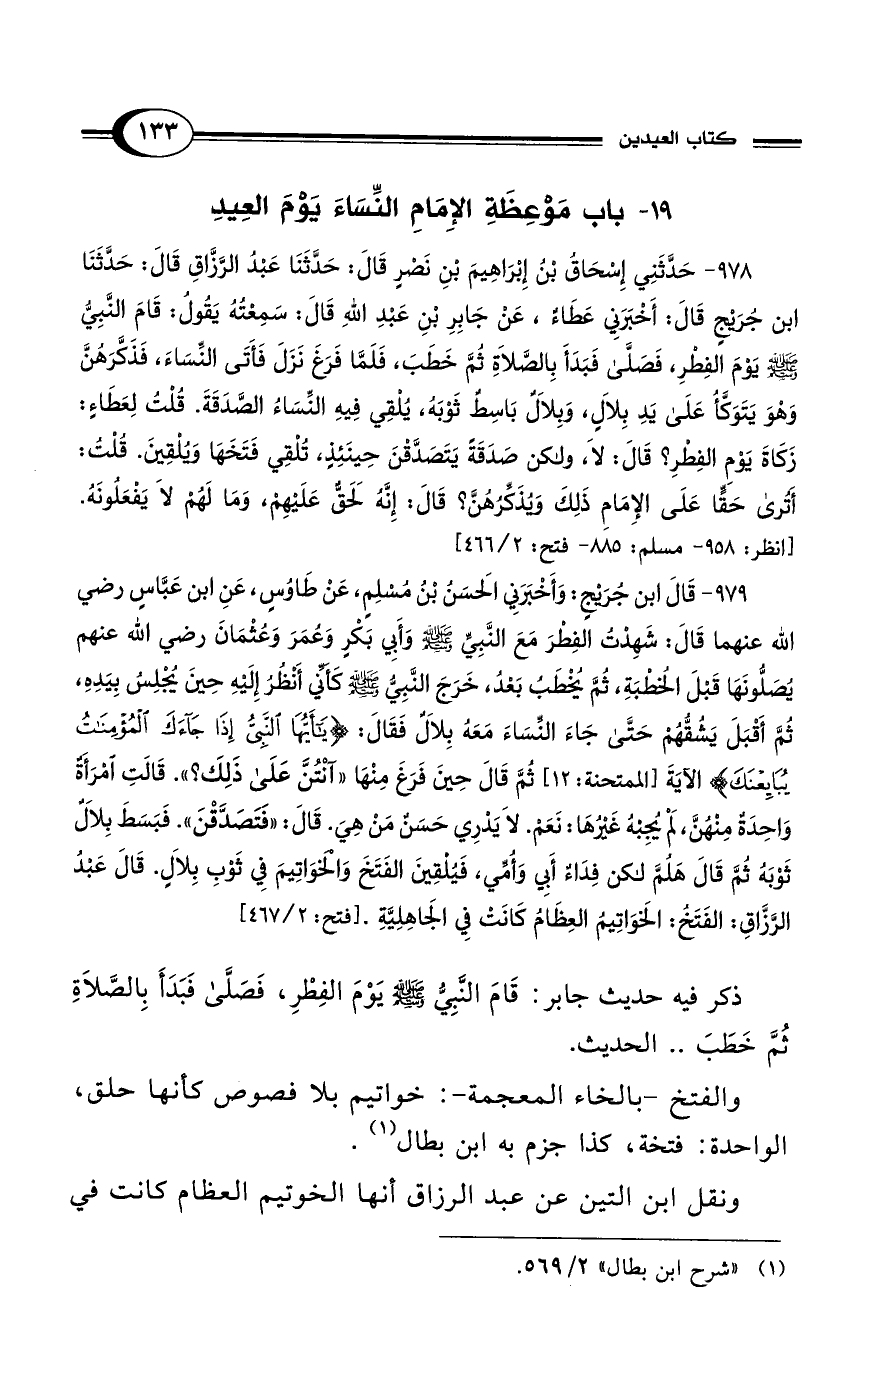 كتاب العيدين ١٣٣
١٩- باب مَوْعِظَةِ الإِمَامِ النِّسَاءَ يَوْمَ العِيدِ
٩٧٨- حَدَّثَنِي إِسْحَاقُ بْنُ إِبْرَاهِيمَ بْنِ نَصْرٍ قَالَ: حَدَّثَنَا عَبْدُ الرَّزَّاقِ قَالَ: حَدَّثَنَا
ابن جُرَيْجٍ قَالَ: أَخْبَرَنِي عَطَاءٌ ، عَنْ جَابِرِ بْنِ عَبْدِ اللهِ قَالَ: سَمِعْتُهُ يَقُولُ: قَامَ النَّبِيُّ
ﷺ يَوْمَ الفِطْرِ، فَصَلَّىٰ فَبَدَأَ بِالصَّلَاةِ ثُمَّ خَطَبَ، فَلَمَّا فَرَغَ نَزَلَ فَأَتَى النِّسَاءَ، فَذَكَّرَهُنَّ
وَهْوَ يَتَوَكَّأُ عَلَىٰ يَدِ بِلَالٍ، وَبِلَالٌ بَاسِطٌ ثَوْبَهُ، يُلْقِي فِيهِ النِّسَاءُ الصَّدَقَةَ. قُلْتُ لِعَطَاءٍ:
زَكَاةَ يَوْمِ الفِطْرِ؟ قَالَ: لَا، ولكن صَدَقَةً يَتَصَدَّقْنَ حِينَئِذٍ، تُلْقِي فَتَخَهَا وَيُلْقِينَ. قُلْتُ:
أَتُرىٰ حَقًّا عَلَى الإِمَامِ ذَلِكَ وَيُذَكِّرُهُنَّ؟ قَالَ: إِنَّهُ لَحَقٌّ عَلَيْهِمْ، وَمَا لَهُمْ لَا يَفْعَلُونَهُ.
[انظر: ٩٥٨- مسلم: ٨٨٥- فتح: ٢/ ٤٦٦]
٩٧٩- قَالَ ابن جُرَيْجٍ: وَأَخْبَرَنِي الحَسَنُ بْنُ مُسْلِمٍ، عَنْ طَاوُسٍ، عَنِ ابن عَبَّاسٍ رضي
الله عنهما قَالَ: شَهِدْتُ الفِطْرَ مَعَ النَّبِيِّ ﷺ وَأَبِي بَكْرٍ وَعُمَرَ وَعُثْمَانَ رضي الله عنهم
يُصَلُّونَهَا قَبْلَ الخُطْبَةِ، ثُمَّ يُخْطَبُ بَعْدُ، خَرَجَ النَّبِيُّ ﷺ كَأَنِّي أَنْظُرُ إِلَيْهِ حِينَ يُجْلِسُ بِيَدِهِ،
ثُمَّ أَقْبَلَ يَشُقُّهُمْ حَتَّىٰ جَاءَ النِّسَاءَ مَعَهُ بِلَالٌ فَقَالَ: ﴿يَٰٓأَيُّهَا ٱلنَّبِيُّ إِذَا جَآءَكَ ٱلْمُؤْمِنَٰتُ
يُبَايِعْنَكَ﴾ الآيَةَ [الممتحنة: ١٢] ثُمَّ قَالَ حِينَ فَرَغَ مِنْهَا «آنْتُنَّ عَلَىٰ ذَلِكَ؟». قَالَتِ ٱمْرَأَةٌ
وَاحِدَةٌ مِنْهُنَّ، لَمْ يُجِبْهُ غَيْرُهَا: نَعَمْ. لَا يَدْرِي حَسَنٌ مَنْ هِيَ. قَالَ: «فَتَصَدَّقْنَ». فَبَسَطَ بِلَالٌ
ثَوْبَهُ ثُمَّ قَالَ هَلُمَّ لكن فِدَاءٌ أَبِي وَأُمِّي، فَيُلْقِينَ الفَتَخَ وَالخَوَاتِيمَ فِي ثَوْبِ بِلَالٍ. قَالَ عَبْدُ
الرَّزَّاقِ: الفَتَخُ: الخَوَاتِيمُ العِظَامُ كَانَتْ فِي الجَاهِلِيَّةِ .[فتح: ٢/ ٤٦٧]
ذكر فيه حديث جابر: قَامَ النَّبِيُّ ﷺ يَوْمَ الفِطْرِ، فَصَلَّىٰ فَبَدَأَ بِالصَّلَاةِ
ثُمَّ خَطَبَ .. الحديث.
والفتخ -بالخاء المعجمة-: خواتيم بلا فصوص كأنها حلق،
الواحدة: فتخة، كذا جزم به ابن بطال(١) .
ونقل ابن التين عن عبد الرزاق أنها الخوتيم العظام كانت في
(١) «شرح ابن بطال» ٢/ ٥٦٩.